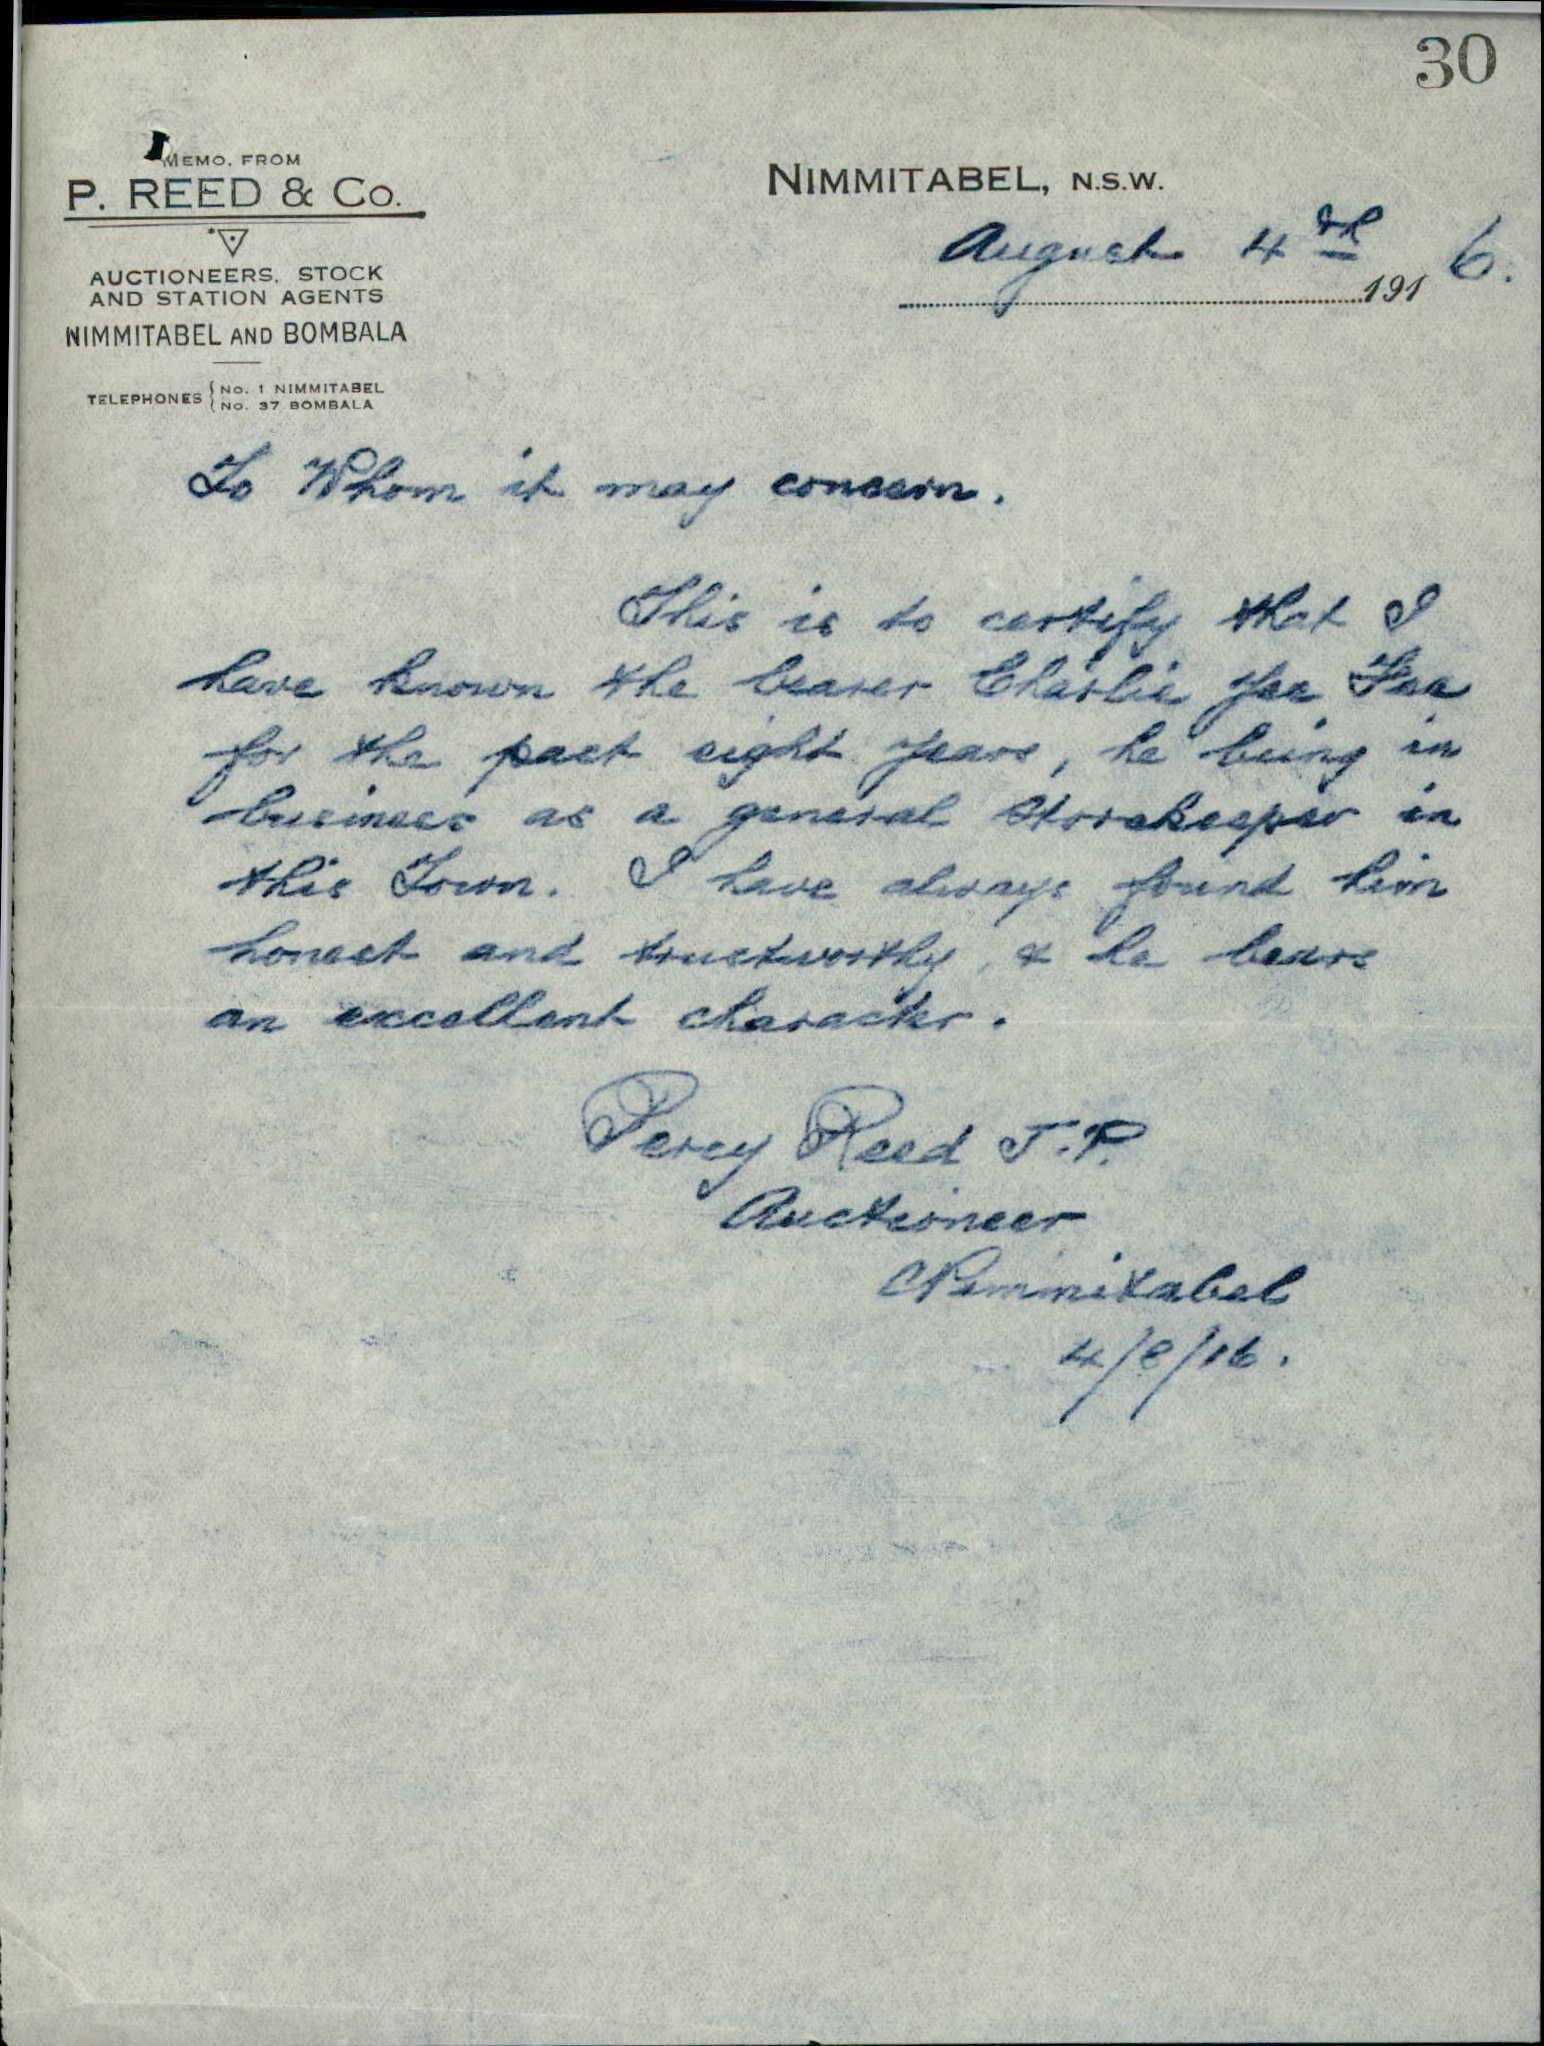 30
MEMO. FROM
P. REED & Co.
AUCTIONEERS, STOCK
AND STATION AGENTS
NIMMITABEL AND BOMBALA
TELEPHONES { No. 1 NIMMITABEL
No. 37 BOMBALA
NIMMITABEL, N.S.W.
August 4th 1916.
To Whom it may concern.
This is to certify that I
have known the bearer Charlie Yee Fee
for the past eight years, he being in
business as a general storekeeper in
this Town. I have always found him
honest and trustworthy, & he bears
an excellent character.
Percy Reed J.P.
Auctioneer
Nimmitabel
4/8/16.